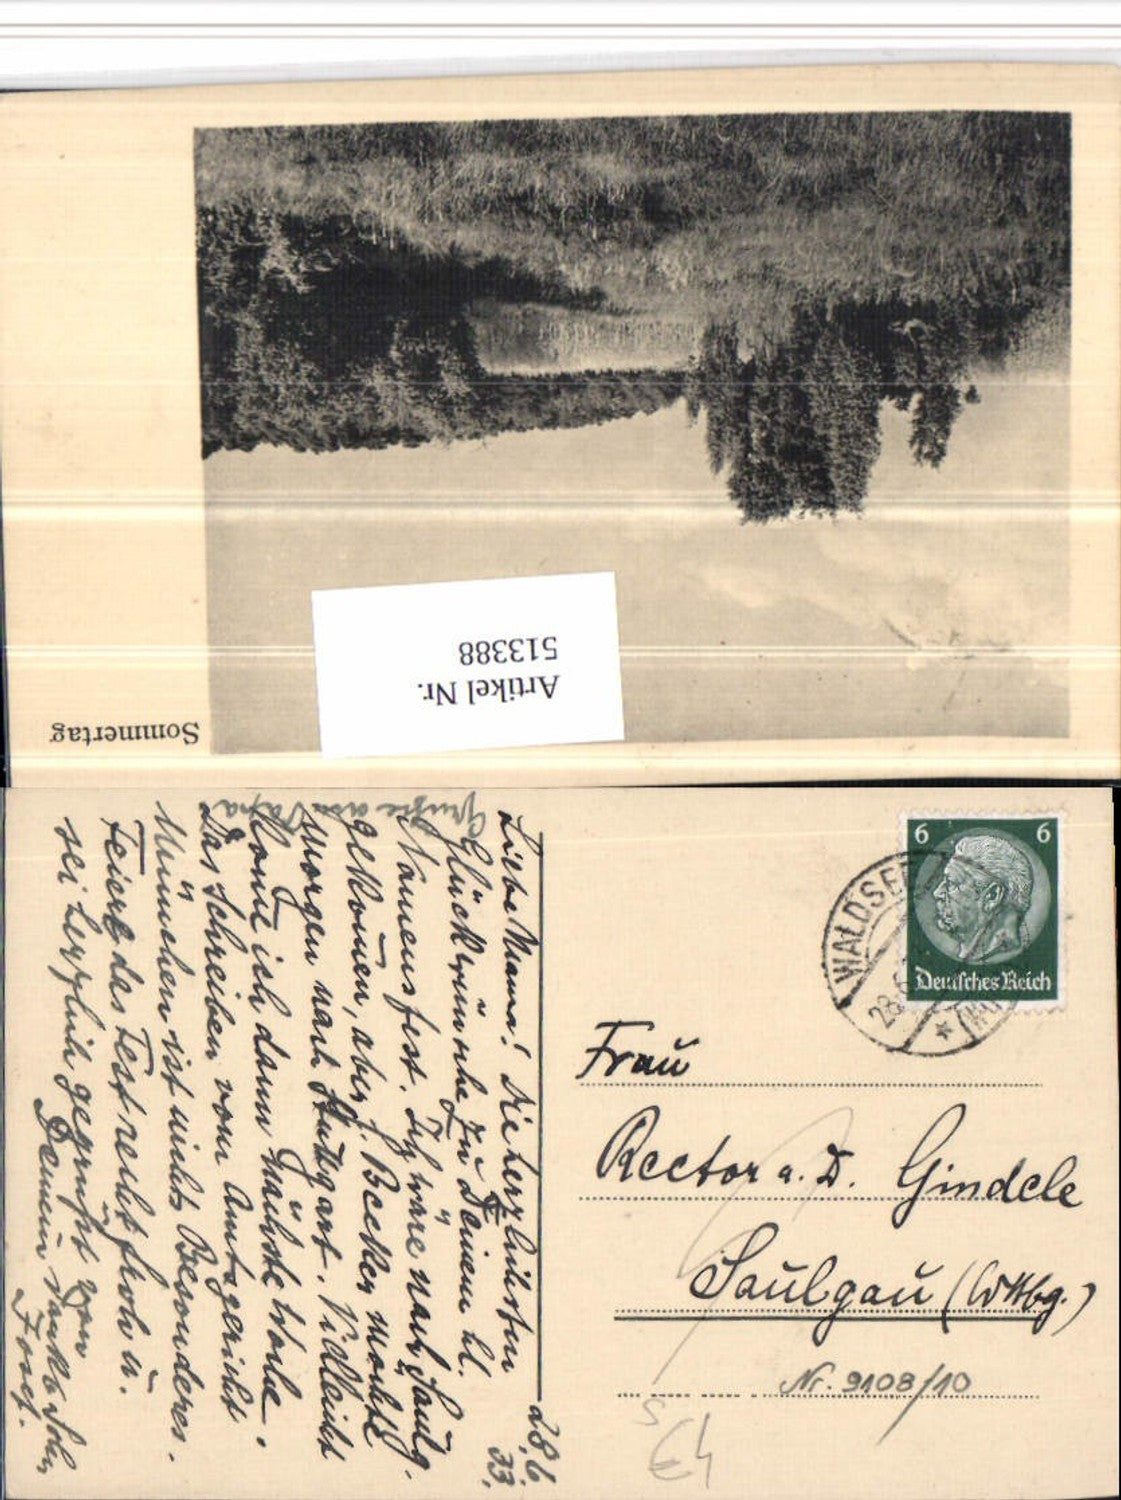 Sommertag
Artikel Nr.
513388
6 6
Deutsches Reich
WALDSEE
28.6
Frau
Rector a. D. Gindele
Saulgau (Wttbg.)
Nr. 9108/10
28.6.
33.
Liebe Mama! Die herzlichsten
Glückwünsche zu Deinem hl.
Namensfest. Ich wäre nach Saulg.
gekommen, aber J. Becker möchte
morgen nach Stuttgart. Vielleicht
komme ich dann nächste Woche.
Das Schreiben vom Amtsgericht
München ist nichts Besonderes.
Feiert das Fest recht froh u.
sei herzlich gegrüßt von
Deinem dankb. Sohn
Josef.
Grüße an Papa